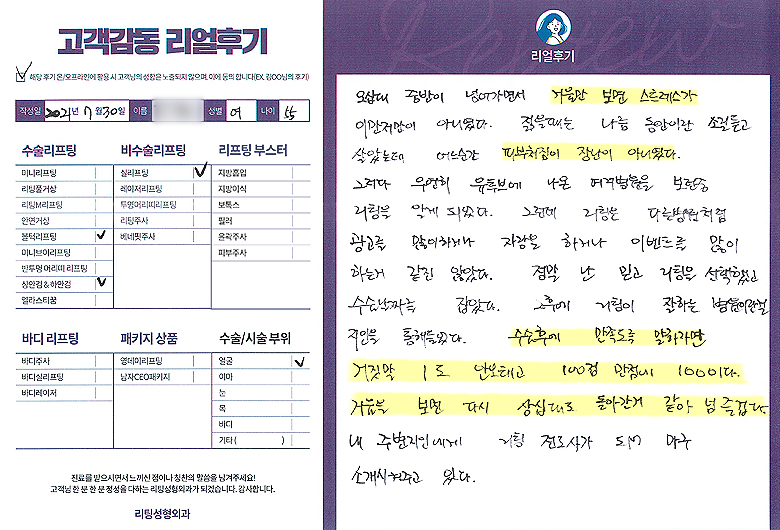 고객감동 리얼후기
해당 후기 온/오프라인에 활용 시 고객님의 성함은 노출되지 않으며, 이에 동의 합니다(EX. 김OO님의 후기)
작성일 2021년 7월 30일 이름 성별 여 나이 55
수술리프팅
미니리프팅
리팅풀거상
리팅M리프팅
안면거상
울턱리프팅
미니브이리프팅
반투명 머리띠 리프팅
상안검 & 하안검
엘라스티꿈
비수술리프팅
실리프팅
레이저리프팅
투명머리띠리프팅
리팅주사
베네핏주사
리프팅 부스터
지방흡입
지방이식
보톡스
필러
윤곽주사
피부주사
바디 리프팅
바디주사
바디실리프팅
바디레이저
패키지 상품
영데이리프팅
남자CEO패키지
수술/시술 부위
얼굴
이마
눈
목
바디
기타 ( )
진료를 받으시면서 느끼신 점이나 칭찬의 말씀을 남겨주세요!
고객님 한 분 한 분 정성을 다하는 리팅성형외과가 되겠습니다. 감사합니다.
리팅성형외과
Review
리얼후기
오십대 중반이 넘어가면서 거울만 보면 스트레스가
이만저만이 아니였다. 젊을때는 나름 동안이란 소릴듣고
살았는데 어느순간 피부처짐이 장난이 아니였다.
그러다 우연히 유튜브에 나온 여러병원을 보던중
리팅을 알게 되었다. 그런데 리팅은 다른병원처럼
광고를 많이하거나 자랑을 하거나 이벤트를 많이
하는거 같진 않았다. 정말 난 믿고 리팅을 선택했고
수술날짜를 잡았다. 그후에 리팅이 잘하는 병원이란걸
지인을 통해들었다. 수술후에 만족도를 말하자면
거짓말 1도 안보태고 100점 만점에 100이다.
거울을 보면 다시 삼십대로 돌아간거 같아 넘 즐겁다.
내 주변지인에게 리팅 전도사가 되어 마구
소개시켜주고 있다.